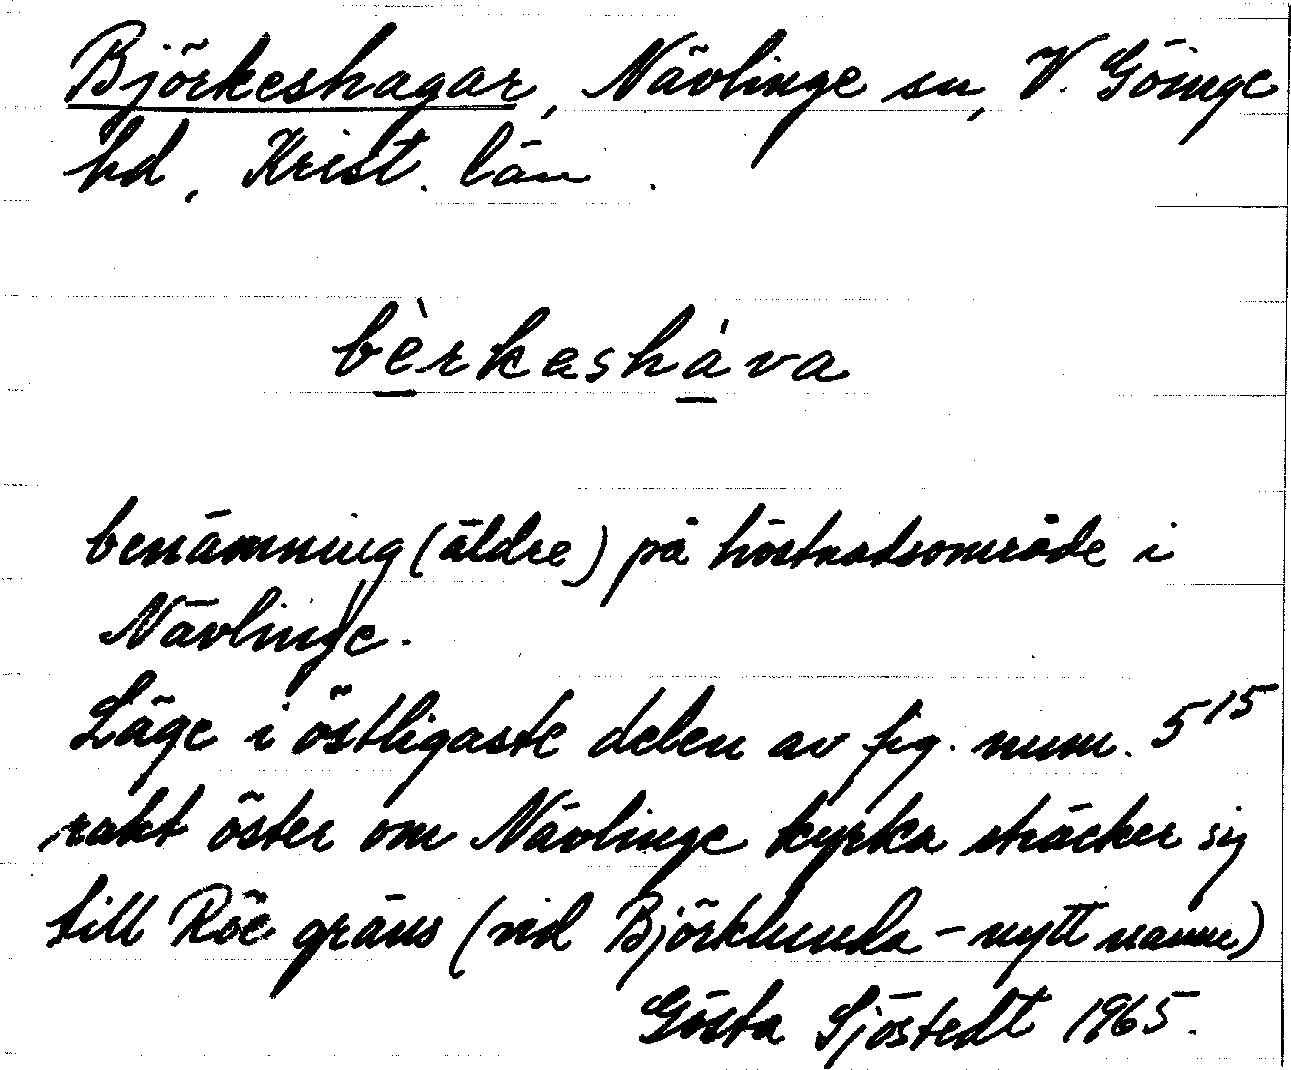 Björkeshagar, Nävlinge sn, V. Göinge
hd, Krist. län.
bèrkesháva
benämning (äldre) på kostnadsområde i
Nävlinge.
Läge i östligaste delen av fig. num. 5 15
rakt öster om Nävlinge kyrka sträcker sig
till Röe gräns (vid Björklunda - nytt namn)
Gösta Sjöstedt 1965.